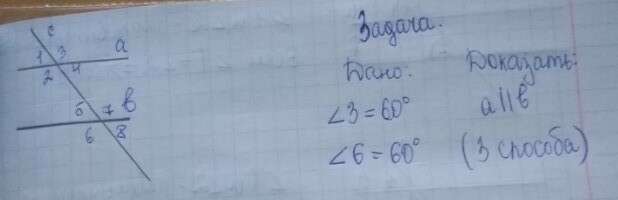 c
1 3 a
2 4
5 7 в
6 8
Задача.
Дано: Доказать:
∠3=60° a||в
∠6=60° (3 способа)